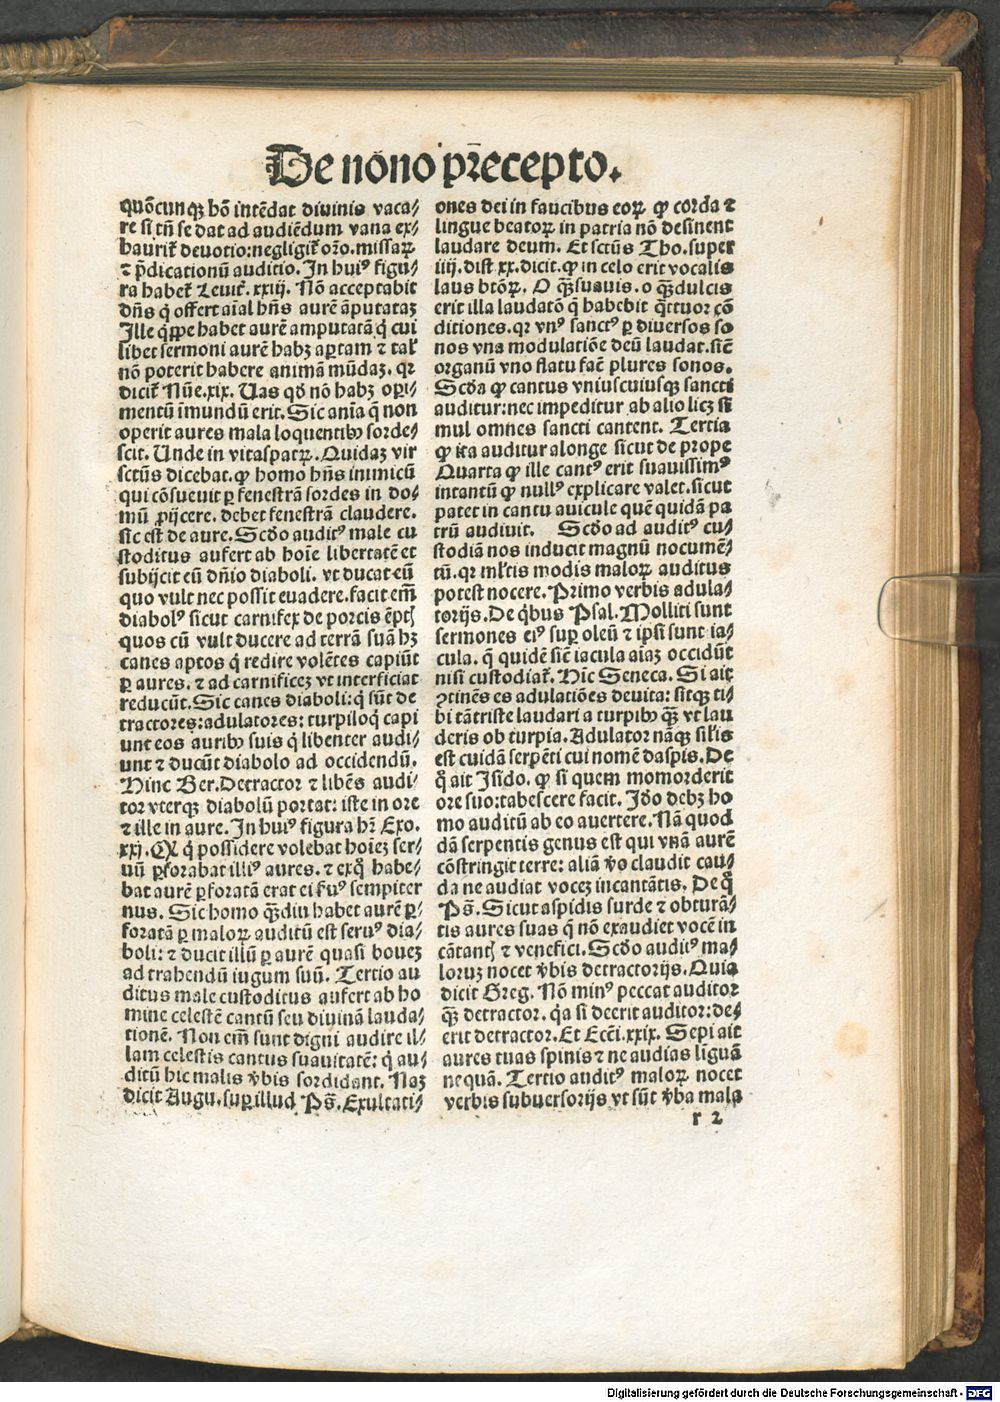 De nōno p̄recepto.
quōcunqꝫ hō intēdat diuinis vaca⸗
re si tn̄ se dat ad audiēdum vana ex⸗
haurit᷑ deuotio:negligit᷑ or̄o.missaꝝ
⁊ p̄dicationū auditio. In huiꝰ figu⸗
ra habet᷑ Leuit᷑. xxij. Nō acceptabit
dn̄s q̇ offert aīal hn̄s aurē āputataꝫ
Ille q̇ꝑpe habet aurē amputatā q̇ cui
libet sermoni aurē habꝫ aꝑtam ⁊ tal᷑
nō poterit habere animā mūdaꝫ. qꝛ
dicit᷑ Nūe.xix. Uas qḋ nō habꝫ oꝑi⸗
mentū īmundū erit. Sic anīa q̄ non
operit aures mala loquentibꝰ sorde⸗
scit. Unde in vitaspatꝝ. Quidaꝫ vir
sctūs dicebat. ꝙ homo hn̄s inimicū
qui cōsueuit ꝑ fenestrā sordes in do⸗
mū ꝓijcere. debet fenestrā claudere.
sic est de aure. Scḋo auditꝰ male cu
stoditus aufert ab hoīe libertatē et
subijcit eū dn̄io diaboli. vt ducat eū
quo vult nec possit euadere. facit em̄
diabolꝰ sicut carnifex de porcis ēptꝭ
quos cū vult ducere ad terrā suā hꝫ
canes aptos q̇ redire volētes capiūt
ꝑ aures. ⁊ ad carnificeꝫ vt interficiat
reducūt. Sic canes diaboli: q̇ sūt de
tractores: adulatores: turpiloq̇ capi
unt eos auribꝰ suis q̇ libenter audi⸗
unt ⁊ ducūt diabolo ad occidendū.
Hinc Ber. Detractor ⁊ libēs audi⸗
tor vterqꝫ diabolū portat: iste in ore
⁊ ille in aure. In huiꝰ figura hr̄ Exo.
xxj. Q q̇ possidere volebat hoīeꝫ ser⸗
uū ꝑforabat illiꝰ aures. ⁊ exq̊ habe⸗
bat aurē ꝑforatā erat ei ẜuꝰ sempiter
nus. Sic homo qꝫdiu habet aurē ꝑ⸗
foratā ꝑ maloꝝ auditū est seruꝰ dia⸗
boli: ⁊ ducit illū ꝑ aurē quasi boueꝫ
ad trahendū iugum suū. Tertio au
ditus male custoditus aufert ab ho
mine celestē cantū seu diuinā lauda⸗
tionē. Non em̄ sunt digni audire il⸗
lam celestis cantus suauitatē: q̇ au⸗
ditū hic malis v̄bis sordidant. Naꝫ
dicit Augu. suꝑ illud Ps̄. Exultati⸗
ones dei in faucibus eoꝝ ꝙ corda ⁊
lingue beatoꝝ in patria nō desinent
laudare deum. Et sctūs Tho. super
iiij. dist xx. dicit. ꝙ in celo erit vocalis
laus btōꝝ. O qꝫsuauis. o qꝫdulcis
erit illa laudatō q̄ habebit q̄ttuor cō
ditiones. qꝛ vnꝰ sanctꝰ ꝑ diuersos so
nos vna modulatiōe deū laudat. sic̄
organū vno flatu fac̄ plures sonos.
Scḋa ꝙ cantus vniuscuiusqꝫ sancti
auditur:nec impeditur ab alio licꝫ si
mul omnes sancti cantent. Tertia
ꝙ ita auditur alonge sicut de prope
Quarta ꝙ ille cantꝰ erit suauissimꝰ
intantū ꝙ nullꝰ explicare valet. sicut
patet in cantu auicule quē quidā pa
trū audiuit. Scḋo ad auditꝰ cu⸗
stodiā nos inducit magnū nocumē⸗
tū. qꝛ ml̄tis modis maloꝝ auditus
potest nocere. Primo verbis adula⸗
torijs. De q̇bus Psal. Molliti sunt
sermones eiꝰ suꝑ oleū ⁊ ip̄si sunt ia⸗
cula. q̄ quidē sic̄ iacula aīaꝫ occidūt
nisi custodiat᷑. Hic Seneca. Si ait
ꝯtinēs es adulatiōes deuita: sitqꝫ ti⸗
bi tātriste laudari a turpibꝰ qꝫ vt lau
deris ob turpia. Adulator nāqꝫ sil̄is
est cuidā serpēti cui nomē daspis. De
q̊ ait Isido. ꝙ si quem momorderit
ore suo: tabescere facit. Iḋo debꝫ ho
mo auditū ab eo auertere. Nā quod
dā serpentis genus est qui vnā aurē
cōstringit terre: aliā v̊o claudit cau⸗
da ne audiat voceꝫ incantātis. De q̊
Ps̄. Sicut aspidis surde ⁊ obturā⸗
tis aures suas q̄ nō exaudiet vocē in
cātantꝭ ⁊ venefici. Scḋo auditꝰ ma⸗
loruꝫ nocet v̄bis detractorijs. Quia
dicit Greg. Nō minꝰ peccat auditor
qꝫ detractor. q̇a si deerit auditor: de⸗
erit detractor. Et Ecc̄i. xxix. Sepi ait
aures tuas spinis ⁊ ne audias liguā
nequā. Tertio auditꝰ maloꝝ nocet
verbis subuersorijs vt sūt v̄ba mala
r 2
Digitalisierung gefördert durch die Deutsche Forschungsgemeinschaft - DFG